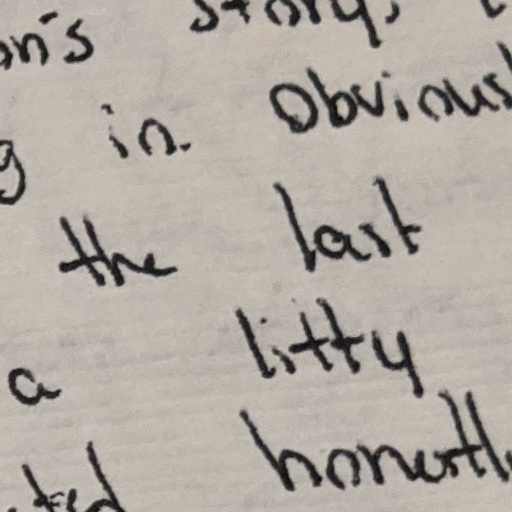 on's story,
g in. Obvious
the last
a litty
ted honestl